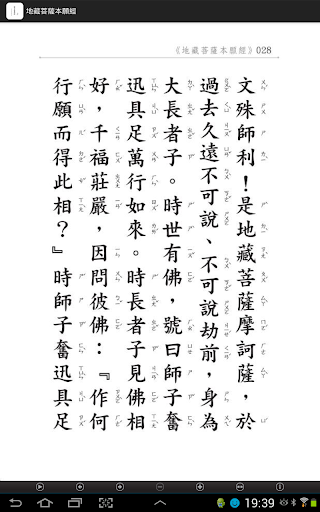 地藏菩薩本願經
《地藏菩薩本願經》028
文殊師利！是地藏菩薩摩訶薩，於
過去久遠不可說、不可說劫前，身為
大長者子。時世有佛，號曰師子奮
迅具足萬行如來。時長者子見佛相
好，千福莊嚴，因問彼佛：『作何
行願而得此相？』時師子奮迅具足
19:39